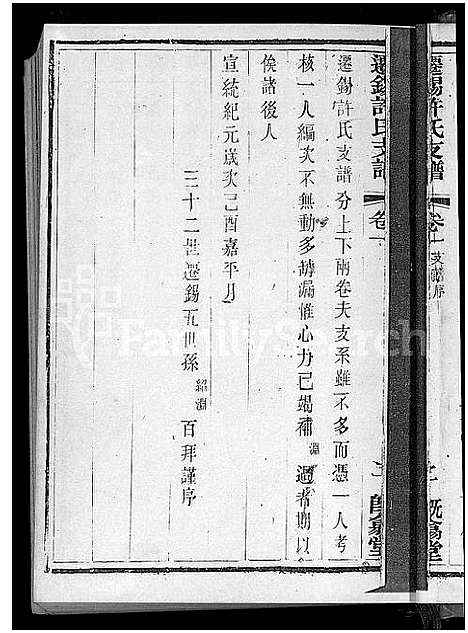 遷錫許氏支譜 卷一 支譜序
遷錫許氏支譜分上下兩卷夫支系雖不多而憑一人考
核一人編次不無動多罅漏惟心力已竭補淵過者期以
俟諸後人
宣統紀元歲次己酉嘉平月
三十二世遷錫五世孫紹淵百拜謹序
FamilySearch